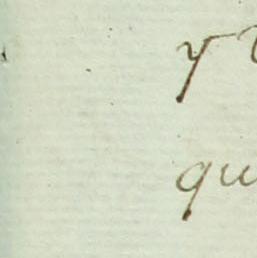 y
qu